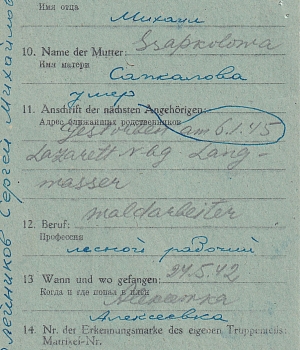 Имя отца
Михаил
10. Name der Mutter: Szapkolowa
Имя матери
Сапкалова
умер
11. Anschrift der nächsten Angehörigen:
Адрес ближайших родственников
gestorben am 6.1.45
Lazarett Nbg. Lang-
wasser
Waldarbeiter
12. Beruf:
Профессия
лесной рабочий
13 Wann und wo gefangen: 24.5.42
Когда и где попал в плен
Alexeewka
Алексеевка
14. Nr. der Erkennungsmarke des eigenen Truppenteils:
Сергей Михайлов